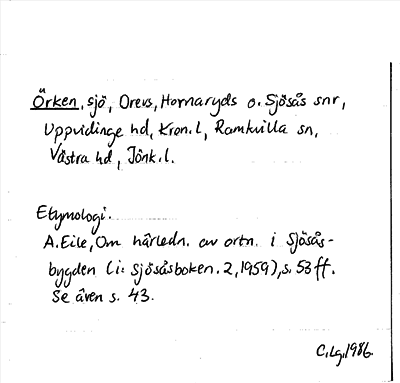 Örken, sjö, Drevs, Hornaryds o. Sjösås snr,
Uppvidinge hd, Kron. l, Ramkvilla sn,
Västra hd, Jönk. l.
Etymologi.
A. Eile, Om härledn. av ortn. i Sjösås-
bygden (i: Sjösåsboken. 2, 1959), s. 53 ff.
Se även s. 43.
C. Lg. 1986.